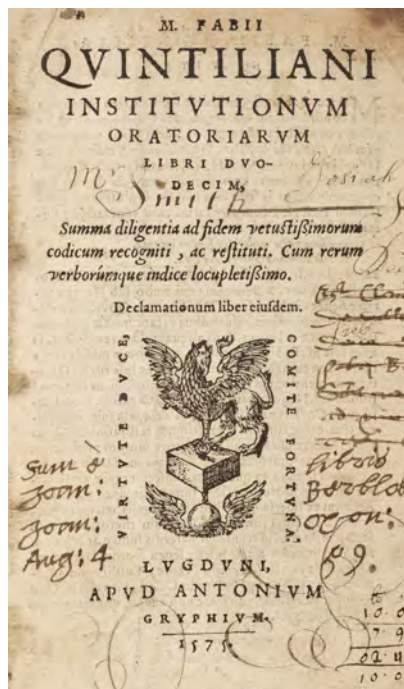 M. FABII
QVINTILIANI
INSTITVTIONVM
ORATORIARVM
LIBRI DVO-
DECIM,
Mr Josiah
Smith
Summa diligentia ad fidem vetustißimorum
codicum recogniti, ac restituti. Cum rerum
verborúmque indice locupletißimo.
Declamationum liber eiusdem.
VIRTVTE DVCE,
COMITE FORTVNA.
Sum è libris
Joan:
Joan: oxon:
Aug: 4 89.
LVGDVNI,
APVD ANTONIVM
GRYPHIVM.
1575.